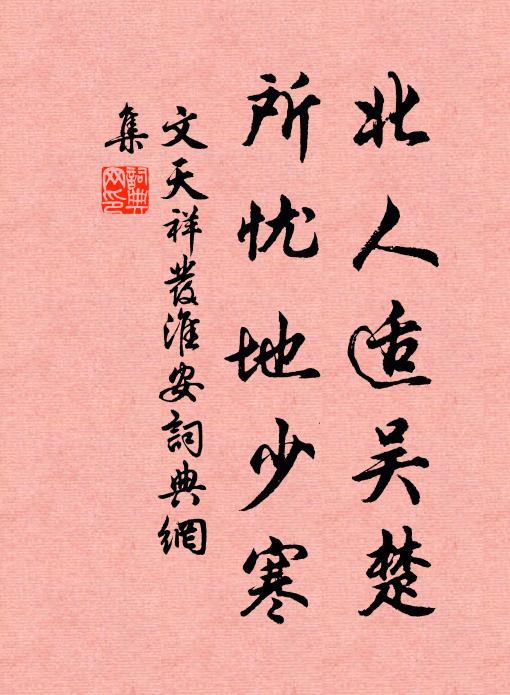 北人适吴楚
所忧地少寒
文天祥發淮安詞典網
集
詞典
网印